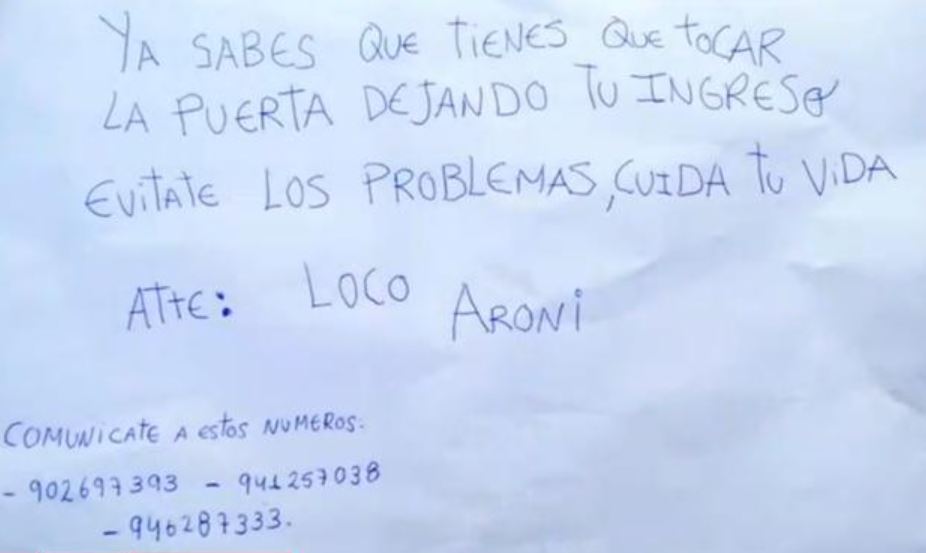 YA SABES QUE TIENES QUE TOCAR
LA PUERTA DEJANDO TU INGRESO
EVITATE LOS PROBLEMAS, CUIDA TU VIDA
ATTE: LOCO ARONI
COMUNICATE A ESTOS NUMEROS:
- 902697393 - 941257038
- 946287333.